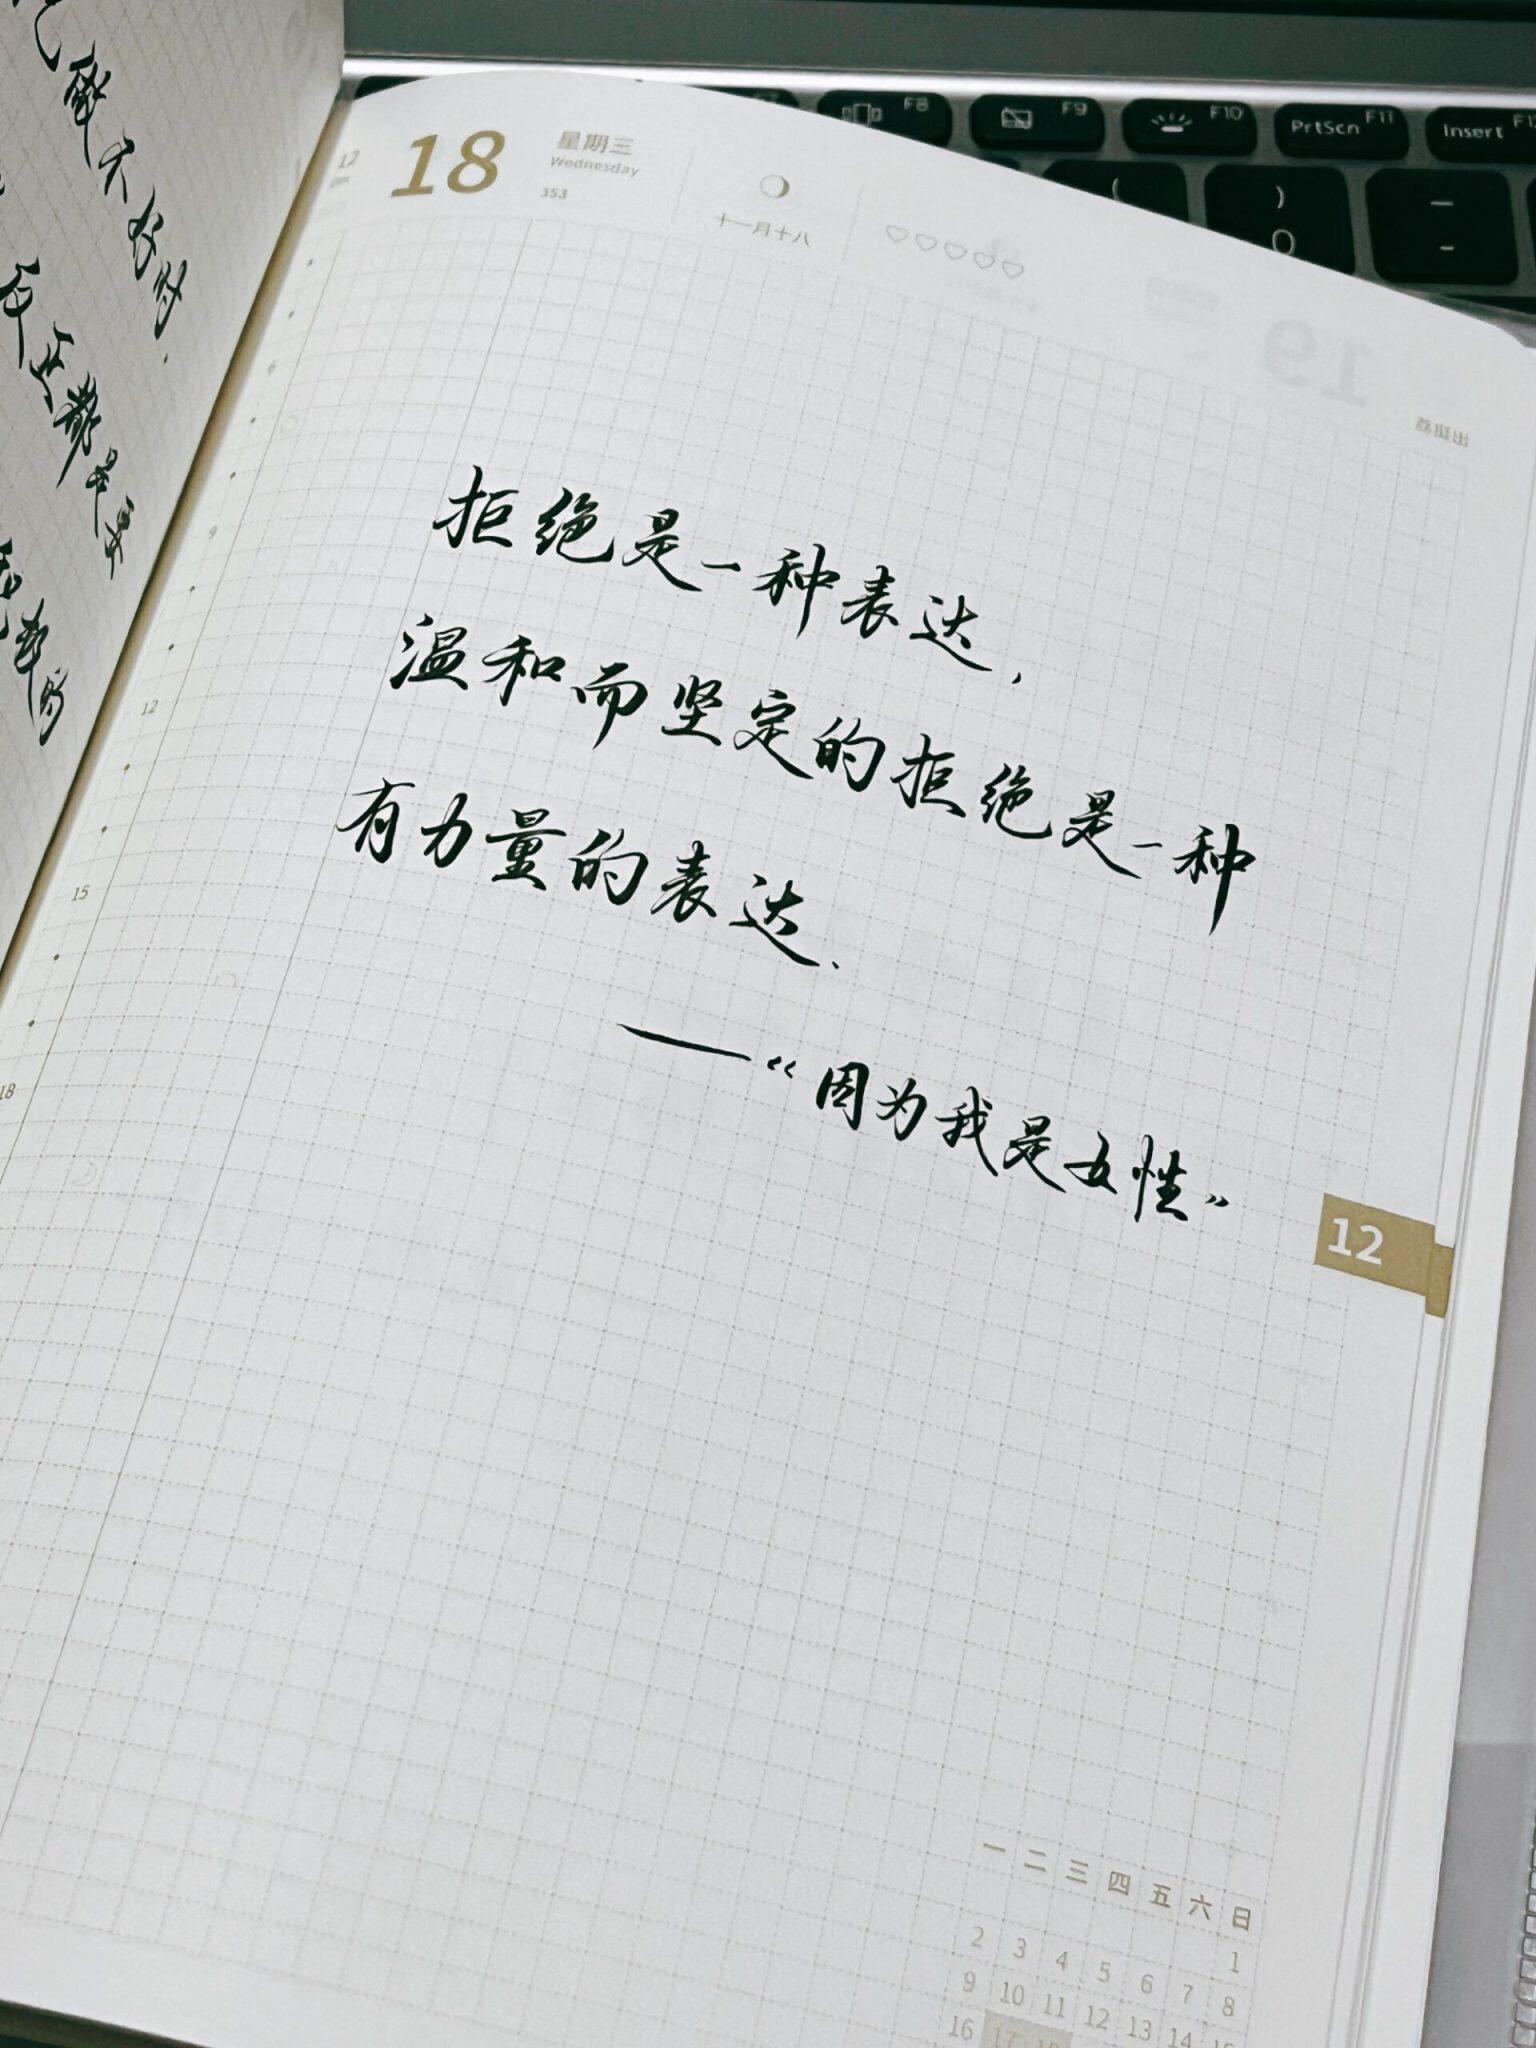 12
Dec
18
星期三
Wednesday
353
十一月十八
拒绝是一种表达,
温和而坚定的拒绝是一种
有力量的表达.
——《因为我是女性》
9
12
15
18
12
一 二 三 四 五 六 日
1
2 3 4 5 6 7 8
9 10 11 12 13 14 15
16 17 18
能不好对.
反正都是要
F8
F9
F10
PrtScn F11
Insert F12
(
) 0
— -